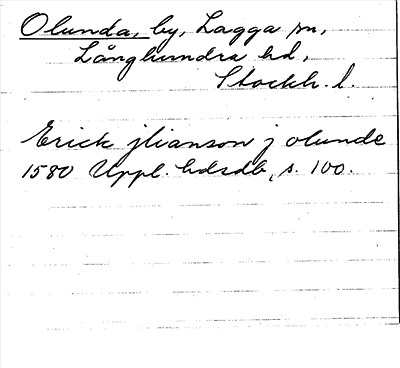 Olunda, by, Lagga sn,
Långhundra hd,
Stockh. l.
Erick jlianson j olunde
1580 Uppl. hdsdb, s. 100.